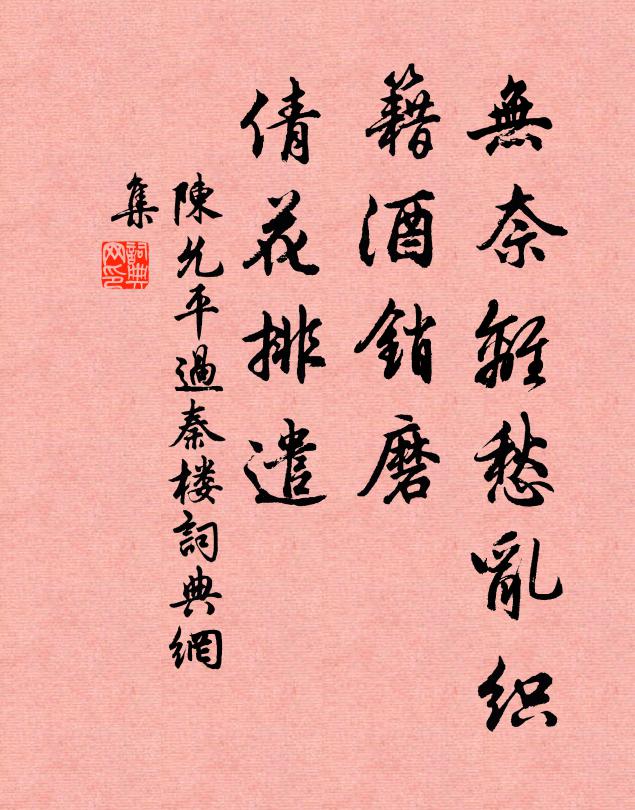 無奈離愁亂織
籍酒銷磨
倩花排遣
陳允平過秦楼詞典網
集
詞典网印